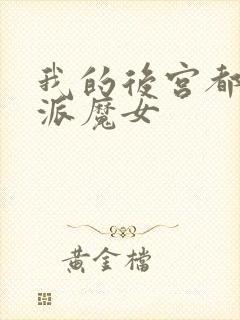 我的後宮都
派魔女
黃金檔